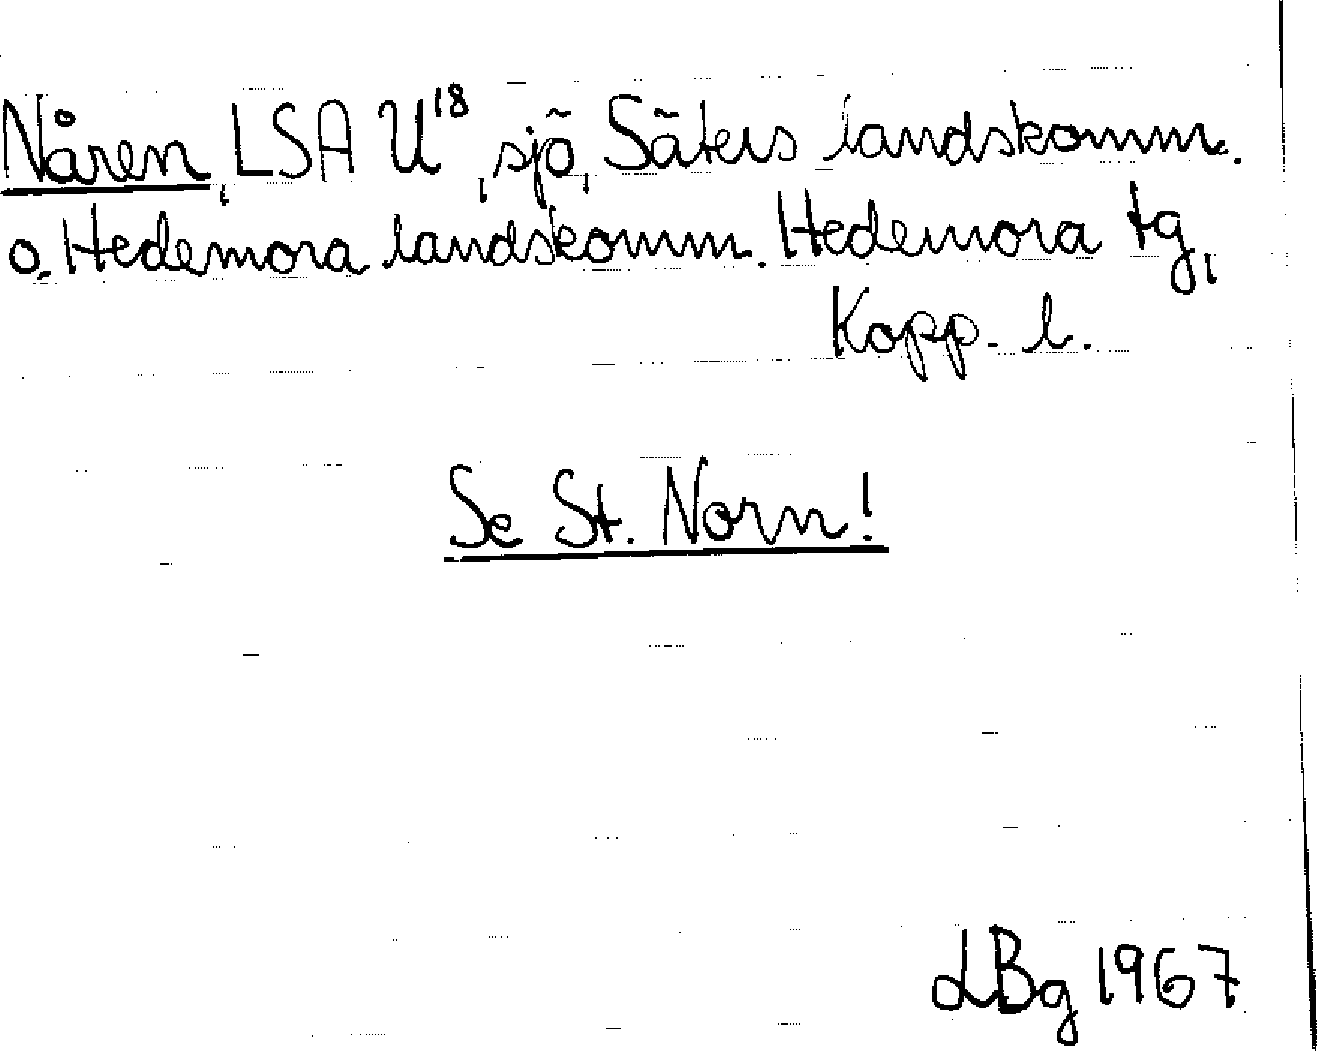 Nåren, LSA U¹⁸, sjö, Säters landskomm.
o. Hedemora landskomm. Hedemora tg,
Kopp. l.
Se St. Norn!
LBg 1967